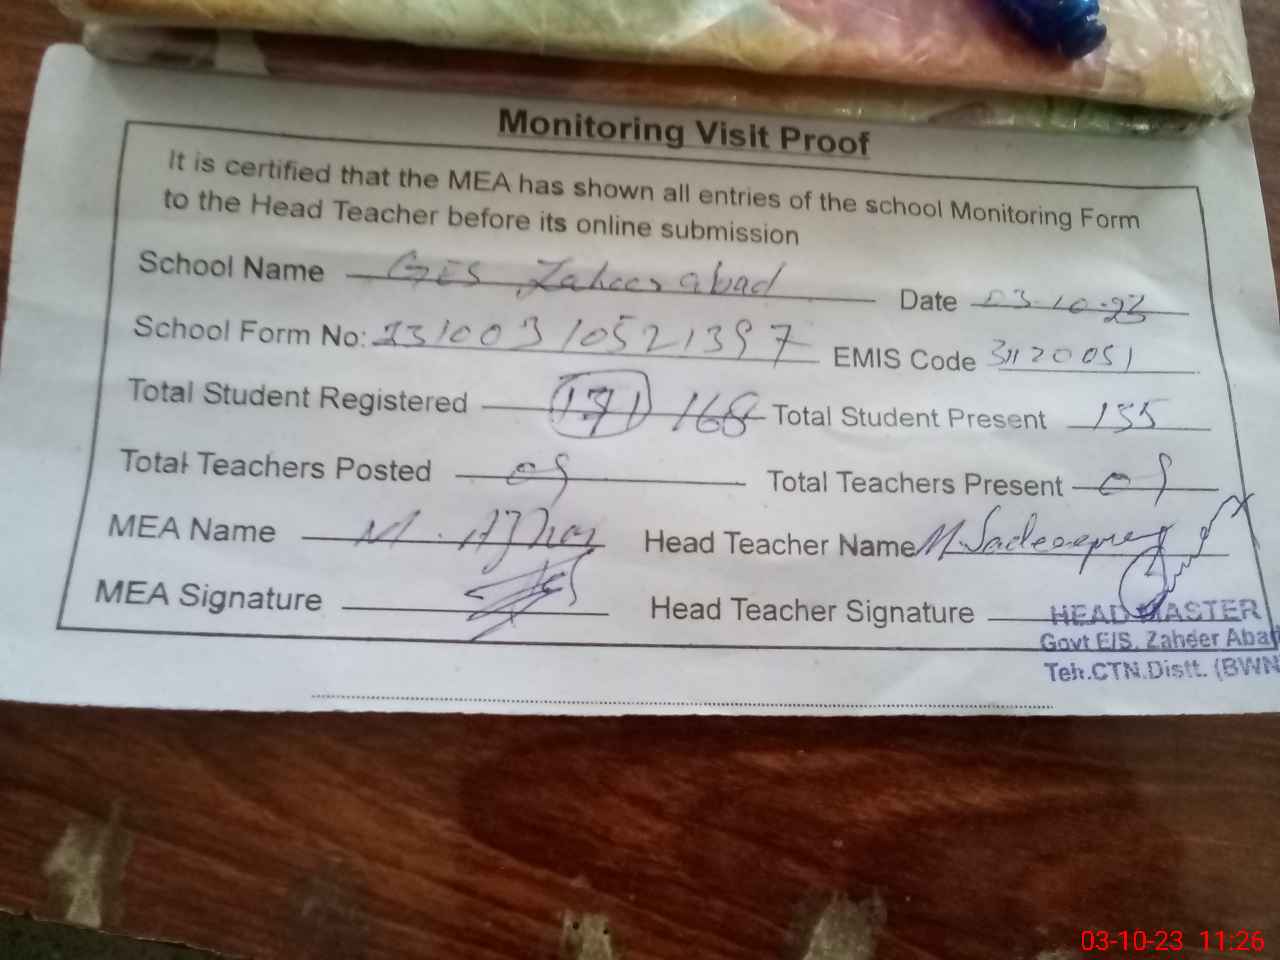 Monitoring Visit Proof
It is certified that the MEA has shown all entries of the school Monitoring Form
to the Head Teacher before its online submission
School Name GES Zaheer abad Date 03-10-23
School Form No: 23100310521397 EMIS Code 31120051
Total Student Registered 171 168 Total Student Present 155
Total Teachers Posted Total Teachers Present
MEA Name M. Head Teacher Name M.
MEA Signature Head Teacher Signature
HEAD MASTER
Govt E/S. Zaheer Abad
Teh.CTN.Distt. (BWN
03-10-23 11:26